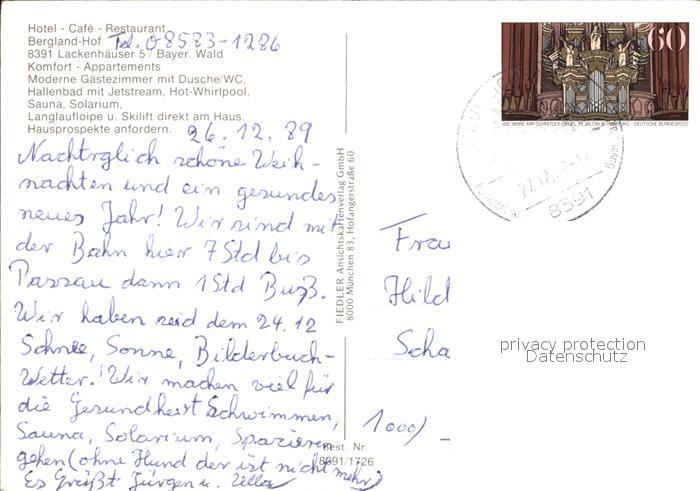 Hotel - Café - Restaurant
Bergland-Hof Tel. 08583-1286
8391 Lackenhäuser 5 / Bayer. Wald
Komfort - Appartements
Moderne Gästezimmer mit Dusche/WC,
Hallenbad mit Jetstream, Hot-Whirlpool,
Sauna, Solarium,
Langlaufloipe u. Skilift direkt am Haus.
Hausprospekte anfordern.
26.12.89
Nachtrglich schöne Weih-
nachten und ein gesundes
neues Jahr! Wir sind mit
der Bahn hier 7 Std bis
Passau dann 1 Std Buß.
Wir haben seid dem 24.12
Schnee, Sonne, Bilderbuch-
Wetter. Wir machen viel für
die Gesundheit Schwimmen,
Sauna, Solarium, Spazieren
gehen (ohne Hund der ist nicht mehr)
Es Grüßt Jürgen u. Ulla
FIEDLER Ansichtskartenverlag GmbH
8000 München 83, Hofangerstraße 60
Best. Nr.
8391/1726
60
300 JAHRE ARP-SCHNITGER-ORGEL ST. JACOBI HAMBURG · DEUTSCHE BUNDESPOST
8391
Frau
Hild
Scha
1000)
privacy protection
Datenschutz